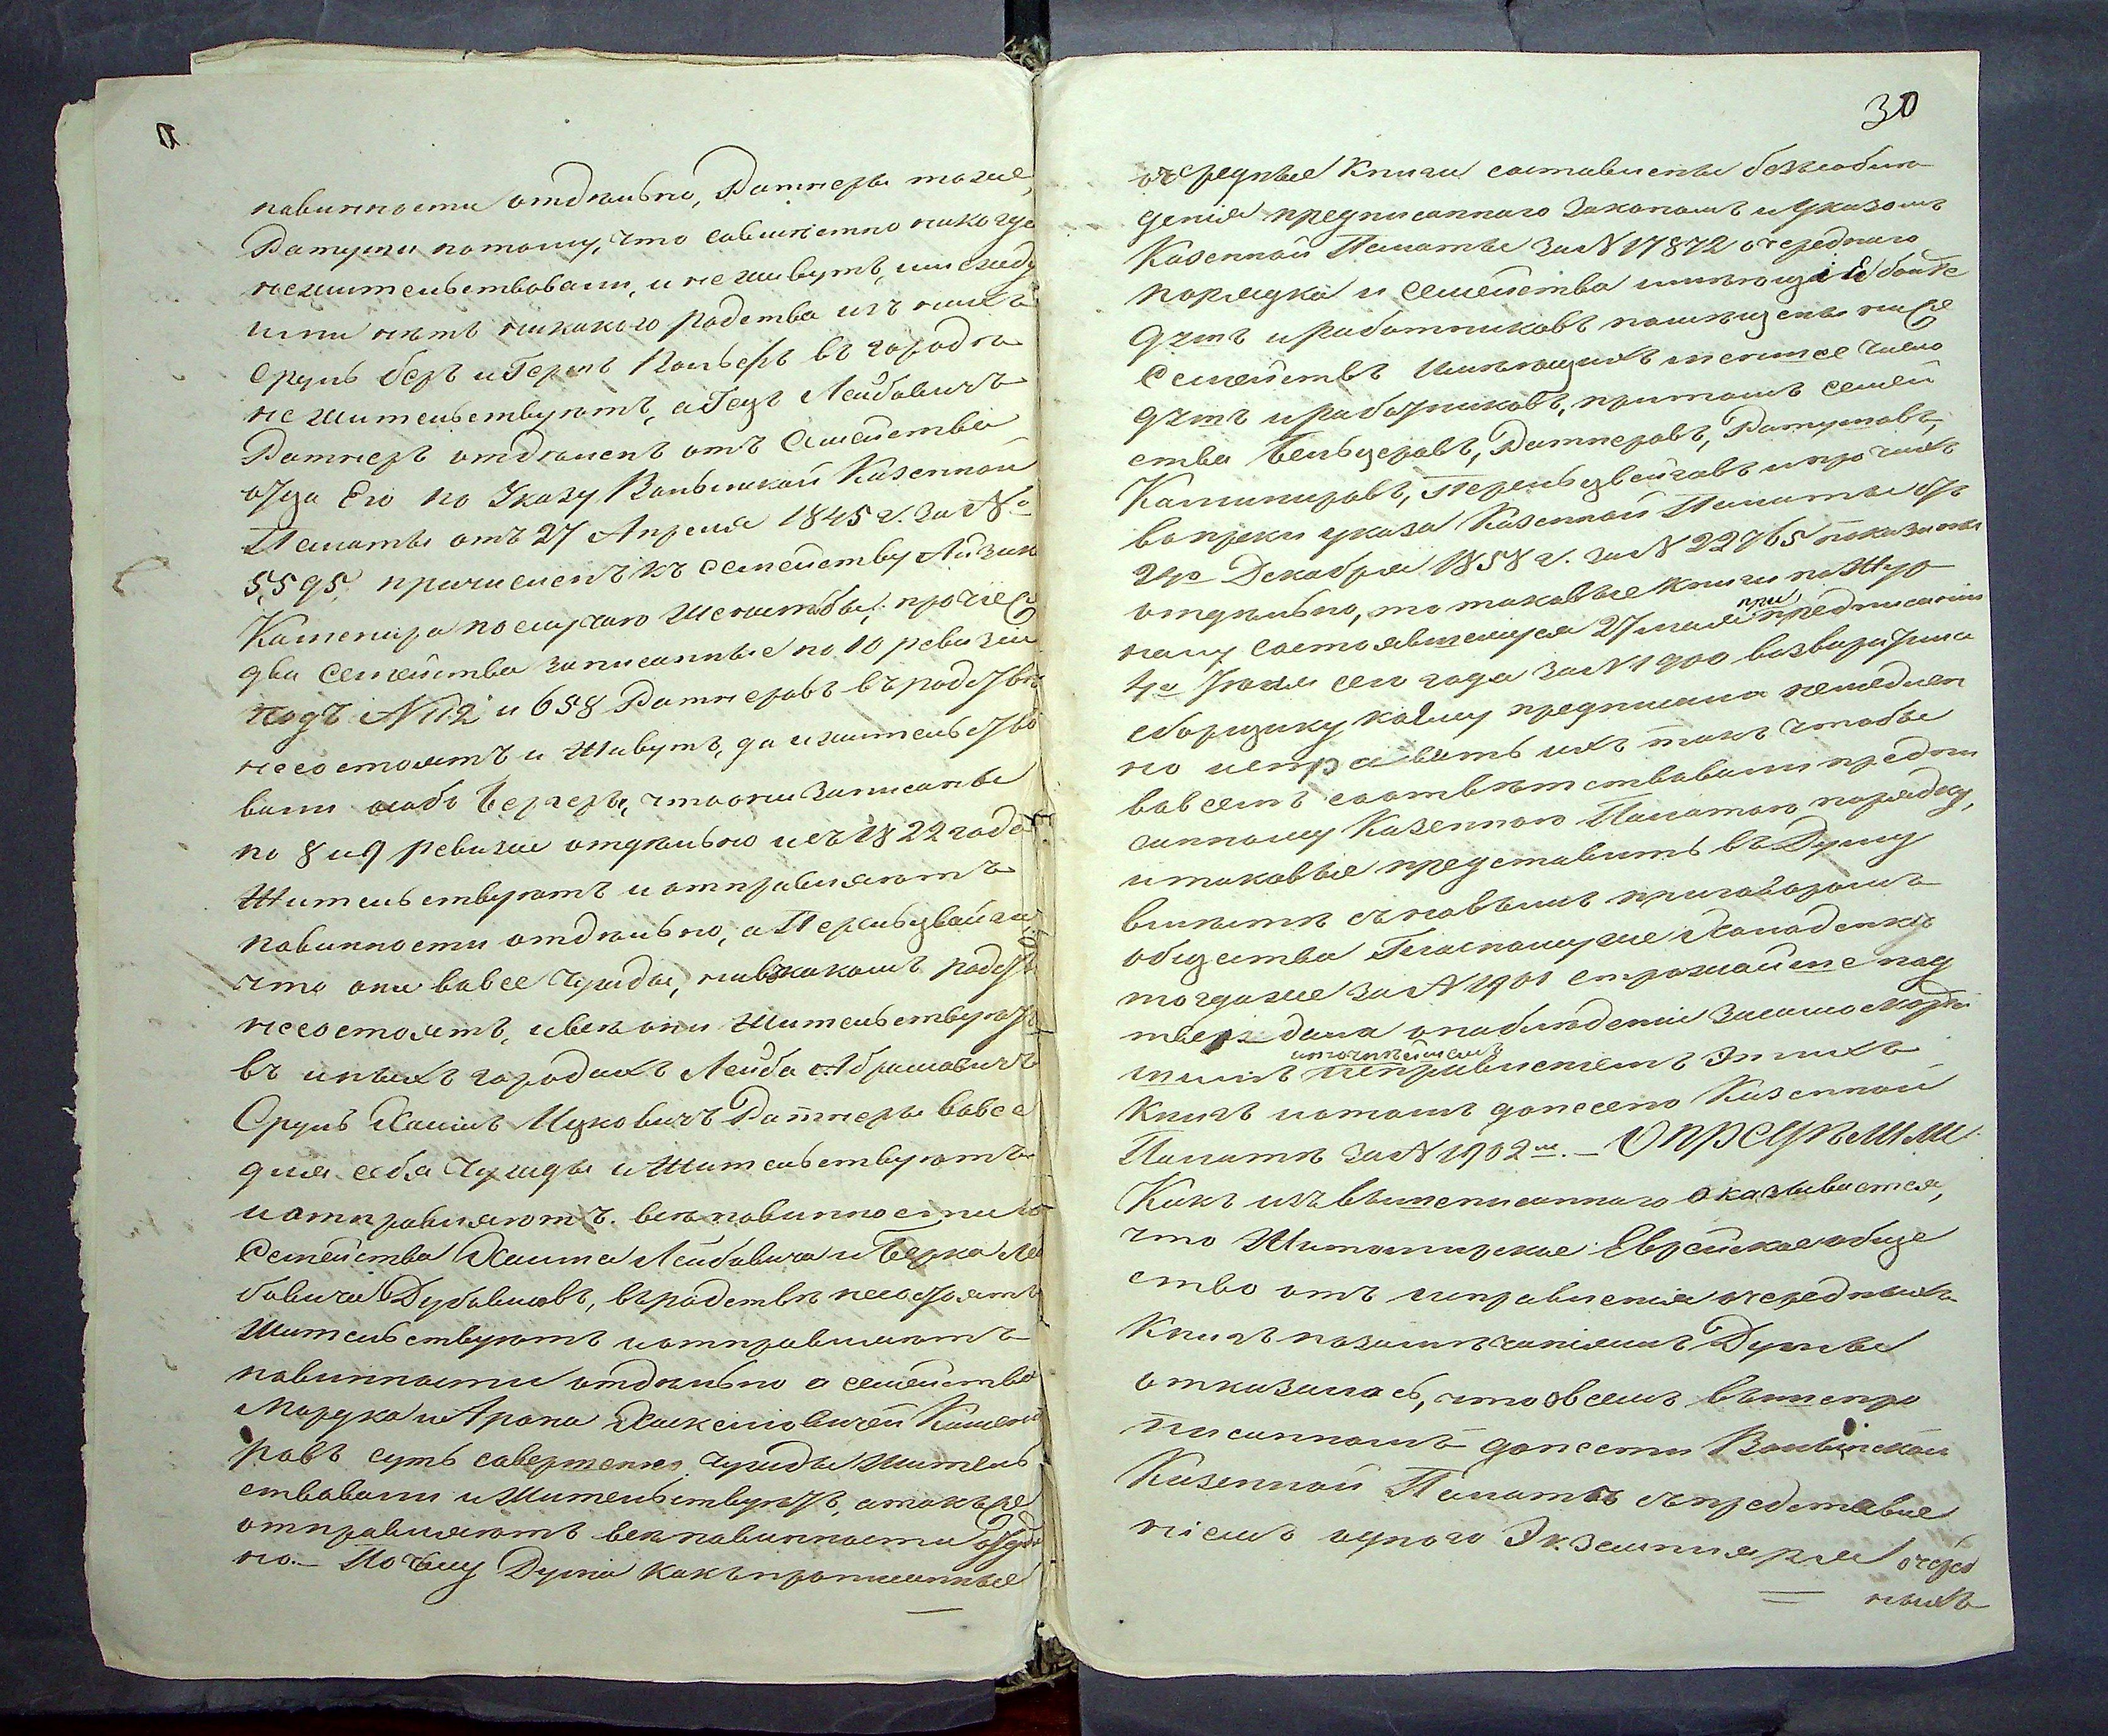 повинности отдѣльно, Ратнеры тоже,
Ратуши потому, что совмѣстно никогда
нежительствовали, и не живутъ, и между
ими нѣтъ никакого родства изъ нихъ
Сруль Беръ и Гершъ Вольфъ въ городѣ
не жительствуютъ, а Гецъ Лейбовичъ
Ратнеръ отдѣленъ отъ Семейства
отца Его по Указу Волынской Казенной
Палаты отъ 27 Апреля 1845 г. за №
5,595, причисленъ къ семейству Айзика
Каменира по случаю женитьбы, прочіе
два Семейства записанные по 10 ревизіи
подъ № 112 и 658 Ратнеровъ въ родствѣ
несостоятъ и Живутъ, да и жительство
вали особо Бергеры, что они записаны
по 8 и 9 ревизіи отдѣльно и съ 1822 года
Жительствуютъ и отправляютъ
повинности отдѣльно, а Перельцвейги
что они вовсе чужды, ни въ какомъ родствѣ
несостоятъ, и всѣ они Жительствуютъ
въ иныхъ городахъ Лейба Абрамовичъ
Сруль Хаимъ Ицковичъ Ратнеры вовсе
для себя чужды и Жительствуютъ
и отправляютъ всѣ повинности
Семейства Хаима Лейбовича и Берка Лей
бовича Дубовисовъ, въ родствѣ несостоятъ
Жительствуютъ и отправляютъ
повинности отдѣльно а семейство
Мордка и Арона Хаскелевичей Камени
ровъ суть совершенно чужды Житель
ствовали и Жительствуютъ, а также
отправляютъ всѣ повинности отдѣль
но. — Почему Дума какъ помянутые
30
очередные Книги составлены безъ соблю
денія предписаннаго Закономъ и Указомъ
Казенной Палаты за № 17872 очереднаго
порядка и Семейства имѣющіе болѣе
душъ и работниковъ помѣщены ниже
Семействъ Имѣющихъ меньшее число
душъ и работниковъ, притомъ семей
ства Бельцеровъ, Ратнеровъ, Ратушовъ,
Каменировъ, Перельцвейговъ и прочихъ
вопреки указа Казенной Палаты отъ
24го Декабря 1858 г. за № 22765 показаны
отдѣльно, то таковые книги по Жур
налу состоявшемуся 27 мая при предписаніи
4го Іюня сего года за № 1900 возвратила
сборщику коему предписала немедлен
но исправить ихъ такъ чтобы
вовсемъ соотвѣтствовали предпи
санному Казенною Палатою порядку,
и таковые представить въ Думу
вмѣстѣ съ новымъ приговоромъ
общества Гласному же Холоденко
тогда же за № 1901 строжайше под
тверждала о наблюденіи за
шимъ и точнѣйшемъ исправленіемъ Этихъ
Книгъ и о томъ донесено Казенной
Палатѣ за № 1902мъ. — Опредѣлили
Какъ изъ вышеписаннаго оказывается,
что Житомирское Еврейское обще
ство отъ исправленія очередныхъ
Книгъ по замѣчаніямъ Думы
отказалось, то о всемъ вышепро
писанномъ донести Волынской
Казенной Палатѣ съ представле
ніемъ одного Экземпляра очеред
ныхъ